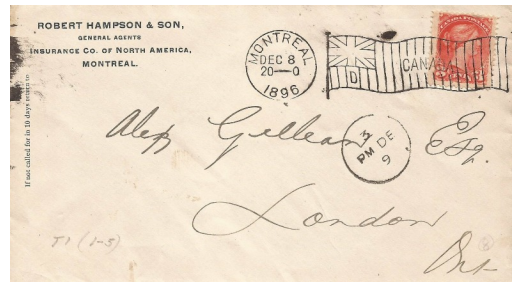 ROBERT HAMPSON & SON,
GENERAL AGENTS
INSURANCE CO. OF NORTH AMERICA,
MONTREAL.
If not called for in 10 days return to
MONTREAL
DEC 8
20—0
1896
D
CANADA
Alex Gillean Esq.
3
PM DE
9
London
Ont
T1 (1-5)